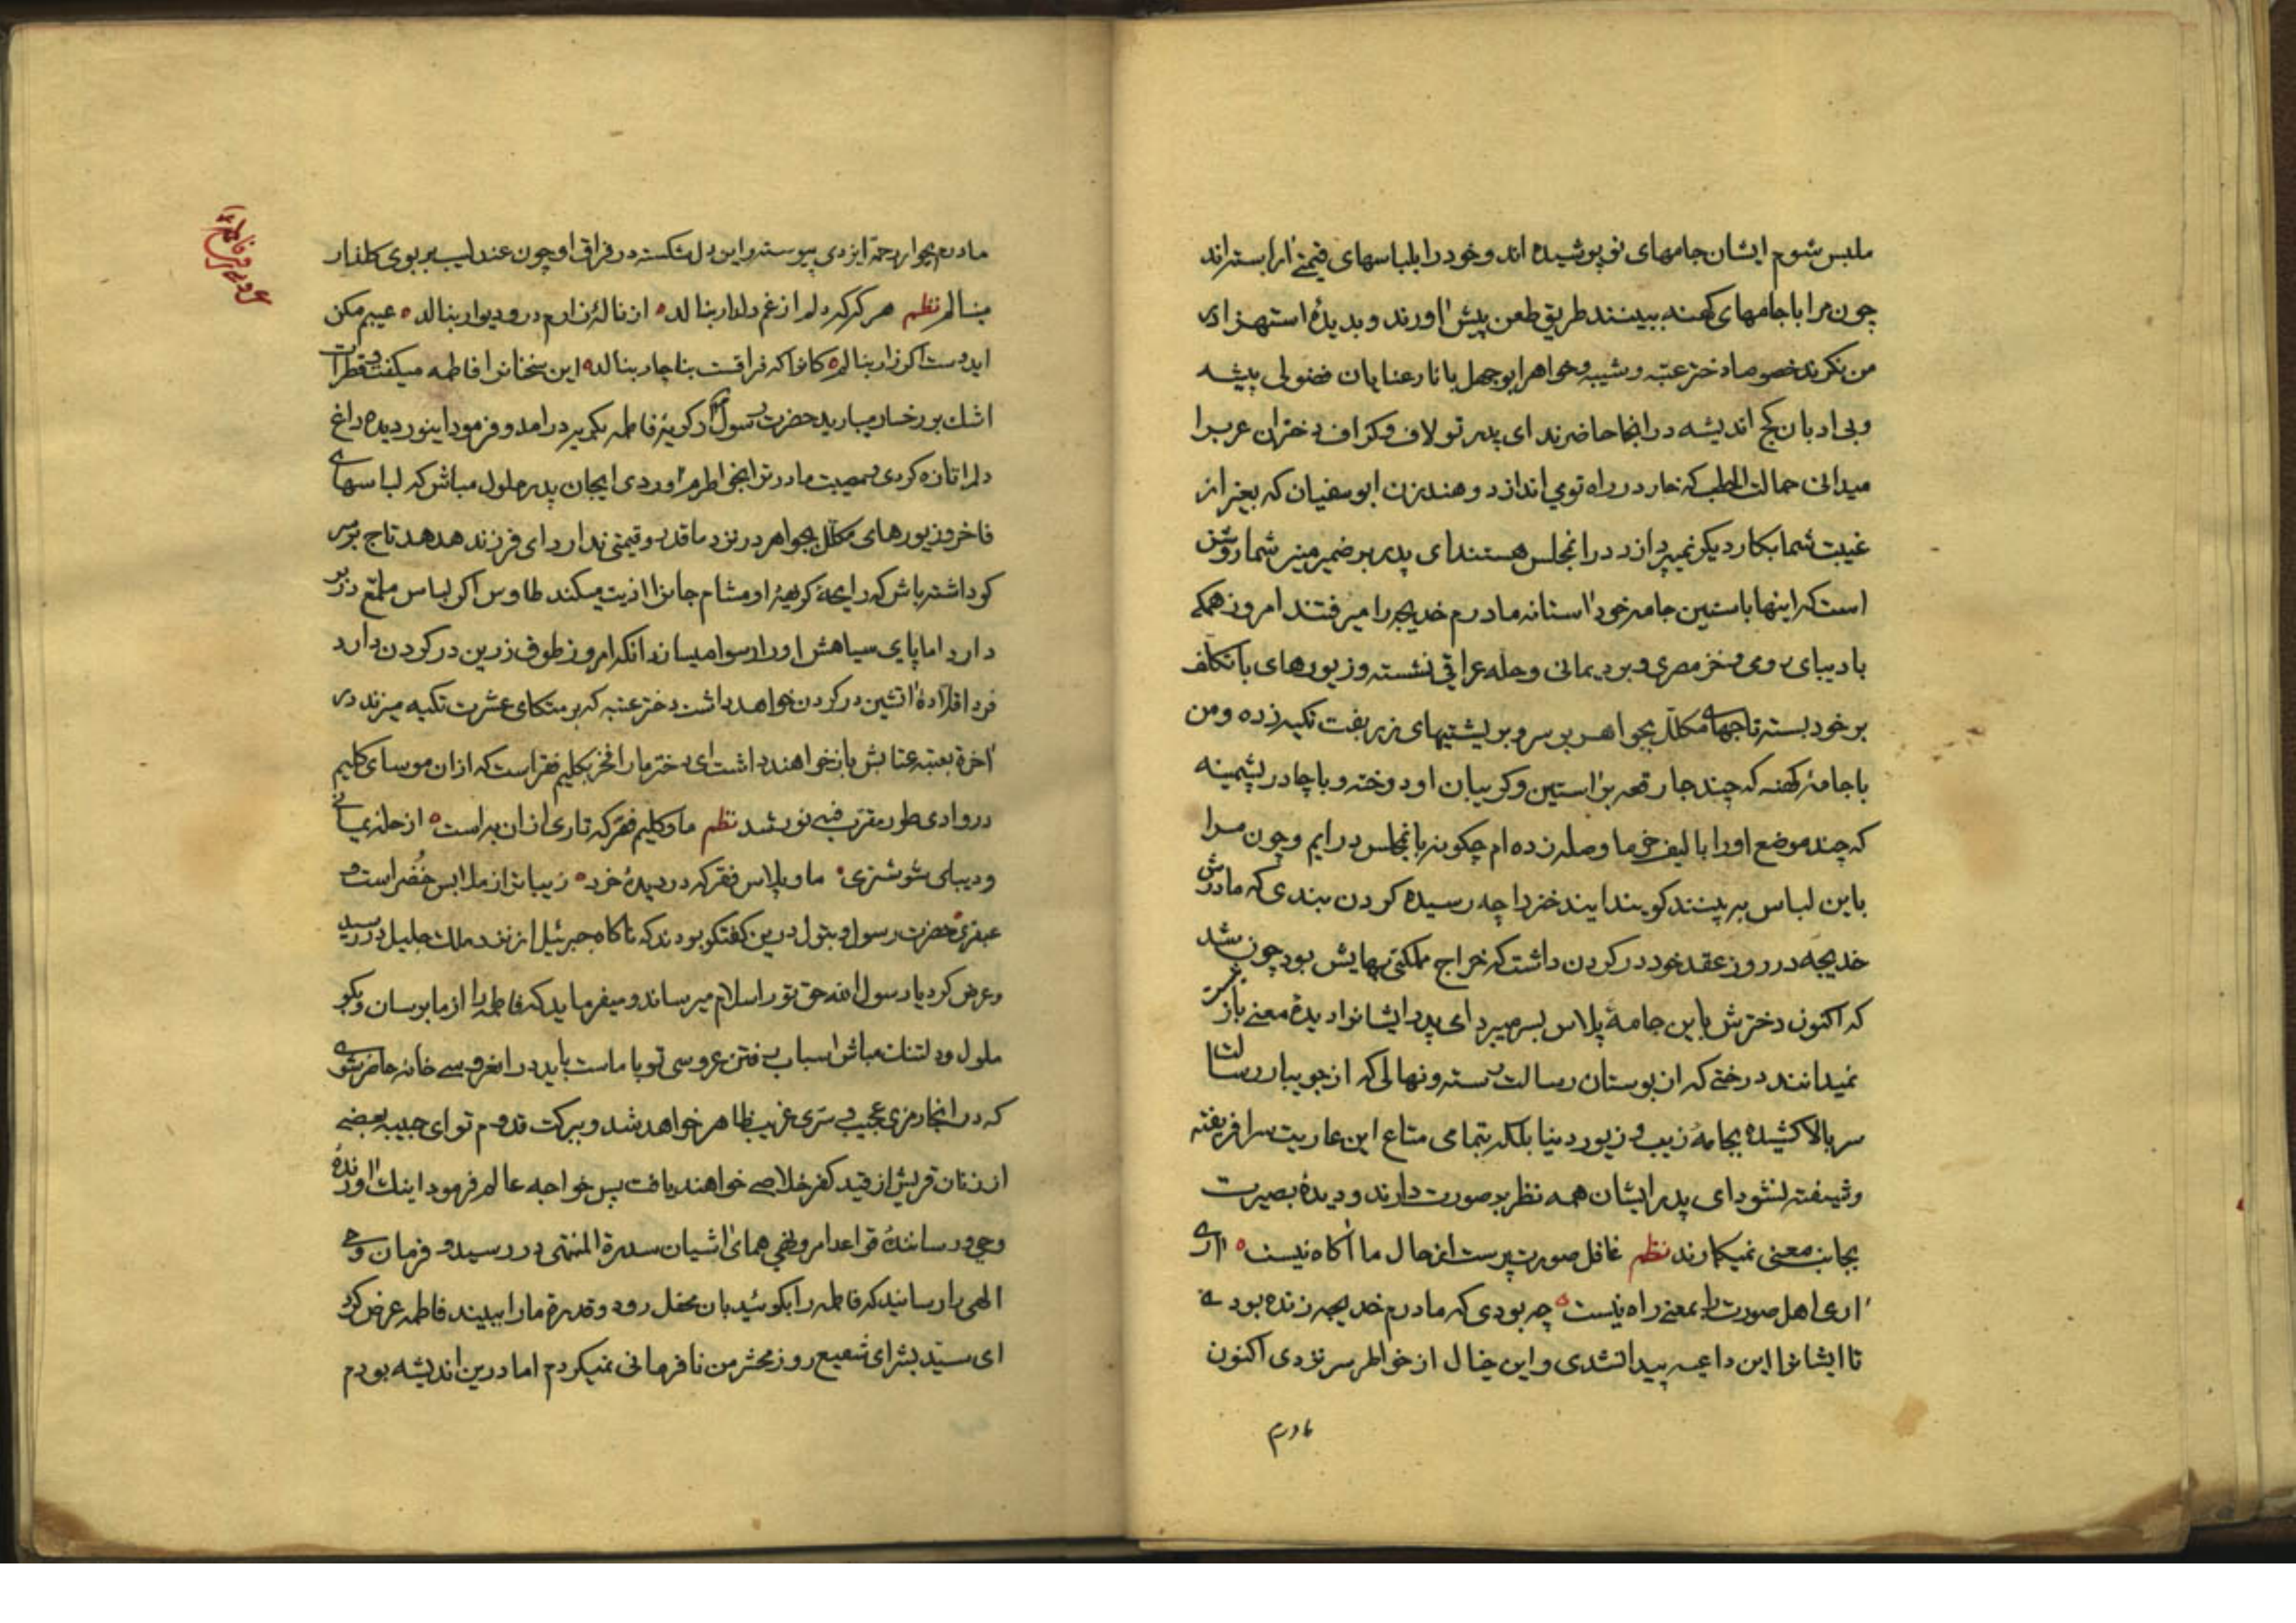 ملبس شوم ایشان جامهای نو پوشیده اند و خود را بلباسهای قیمتی آراسته اند
چون مرا با جامهای کهنه ببینند طریق طعن پیش آورند و بدیدۀ استهزا در
من نکرند خصوصا دختر عتبه و شیبه و خواهر ابوجهل با نارعنایان فضولی پیشه
و بی ادبان کج اندیشه در انجا حاضرند ای پدر تو لاف و کزاف دختران عرب را
میدانی حمالت الحطب که خار در راه تو می اندازد و هند زن ابو سفیان که بغیر از
غیبت شما بکار دیکر نمیپردازد در انمجلس هستند ای پدر بر ضمیر منیر شما روشن
است که اینها باستین جامه خود آستانه مادرم خدیجه را میرفتند امروز همکه
با دیبای رومی و خز مصری و برد یمانی و حله عراقی نشسته و زیورهای با تکلف
بر خود بسته تاجهای مکلل بجواهر بر سر و بر پشتیهای زربفت تکیه زده و من
با جامۀ کهنه که چند جا رقعه بر آستین و کریبان او دوخته و با چادر پشمینه
که چند موضع او را با لیف خرما وصله زده ام چکونه بانمجلس درایم و چون مرا
باین لباس به بینند کویند ایند ختر را چه رسیده کردن بندی که مادرش
خدیجه در روز عقد خود در کردن داشت که خراج مملکتی بهایش بود چون شد
که اکنون دخترش باین جامۀ پلاس بسر میبرد ای پدر ایشانرا دیدۀ معنی باز نیست
نمیدانند درختی که از بوستان رسالت رسته و نهالی که از جویبار رسالت
سر بالا کشیده بجامۀ زیب و زیور دنیا بلکه بتمامی متاع این عاریت سرا فریفته
و شیفته نشود ای پدر ایشان همه نظر بر صورت دارند و دیدۀ بصیرت
بجانب معنی نمیکمارند نظم غافل صورت پرست از حال ما آکاه نیست ه آری
آری اهل صورت را بمعنی راه نیست ه چه بودی که مادرم خدیجه زنده بودی
تا ایشانرا این داعیه پیدا نشدی و این خیال از خواطر سر نزدی اکنون
مادرم
مادرم بجوار رحمة ایزدی پیوسته و این دل شکسته در فراق او چون عندلیب بر بوی کلذار
مینالم نظم هر کز که دلم از غم دلدار بنالد ه از نالۀ زارم در و دیوار بنالد ه عیبم مکن
ایدوست اکر زار بنالم ه کانرا که فراقت بناچار بنالد ه این سخنانرا فاطمه میکفت و قطرات
اشك بر رخسار میبارید حضرت رسول از کریۀ فاطمه بکریه درامد و فرمود اینور دیده داغ
دلم را تازه کردی و مصیبت مادرت را بخواطرم آوردی ایجان پدر ملول مباش که لباسهای
فاخر و زیورهای مکلل بجواهر در نزد ما قدر و قیمتی ندارد ای فرزند هدهد تاج بر سر
کو داشته باش که رایحۀ کریهۀ او مشام جانرا اذیت میکند طاوس اکر لباس ملمع در بر
دارد اما پای سیاهش او را رسوا میسازد انکه امروز طوق زرین در کردن دارد
فردا قلادۀ آتشین در کردن خواهد داشت دختر عتبه که بر متکای عشرت تکیه میزند در
آخرة بعتبه عتابش باز خواهند داشت ای دختر ما را فخر بکلیم فقر است که ازان موسای کلیم
در وادی طور مقرب نور شد نظم ما و کلیم فقر که تاری ازان به است ه از حله یمانی
و دیبای شوشتری ه ما و پلاس فقر که در دیدۀ خرد ه زیباتر از ملابس خضر است و
عبقری ه حضرت رسول و بتول درین کفتکو بودند که ناکاه جبرئیل از نزد ملك جلیل در رسید
و عرض کرد یا رسول الله حق تو را سلام میرساند و میفرماید که فاطمه را از ما برسان و بکو
ملول و دلتنك مباش اسباب رفتن عروسی تو با ماست باید در انعروسی خانه حاضر شوی
که در انجا رمزی عجیب و سری غریب ظاهر خواهد شد و ببرکت قدوم تو ای حبیبه بعضی
از زنان قریش از قید کفر خلاصی خواهند یافت پس خواجه عالم فرمود اینك آورندۀ
وحی و رسانندۀ قواعد امر و نهی همای آشیان سدرة المنتهی در رسید و فرمان وحی
الهی را رسانید که فاطمه را بکوئید بان محفل رود و قدرة ما را ببیند فاطمه عرض کرد
ای سید بشر ای شفیع روز محشر من نافرمانی نمیکردم اما درین اندیشه بودم